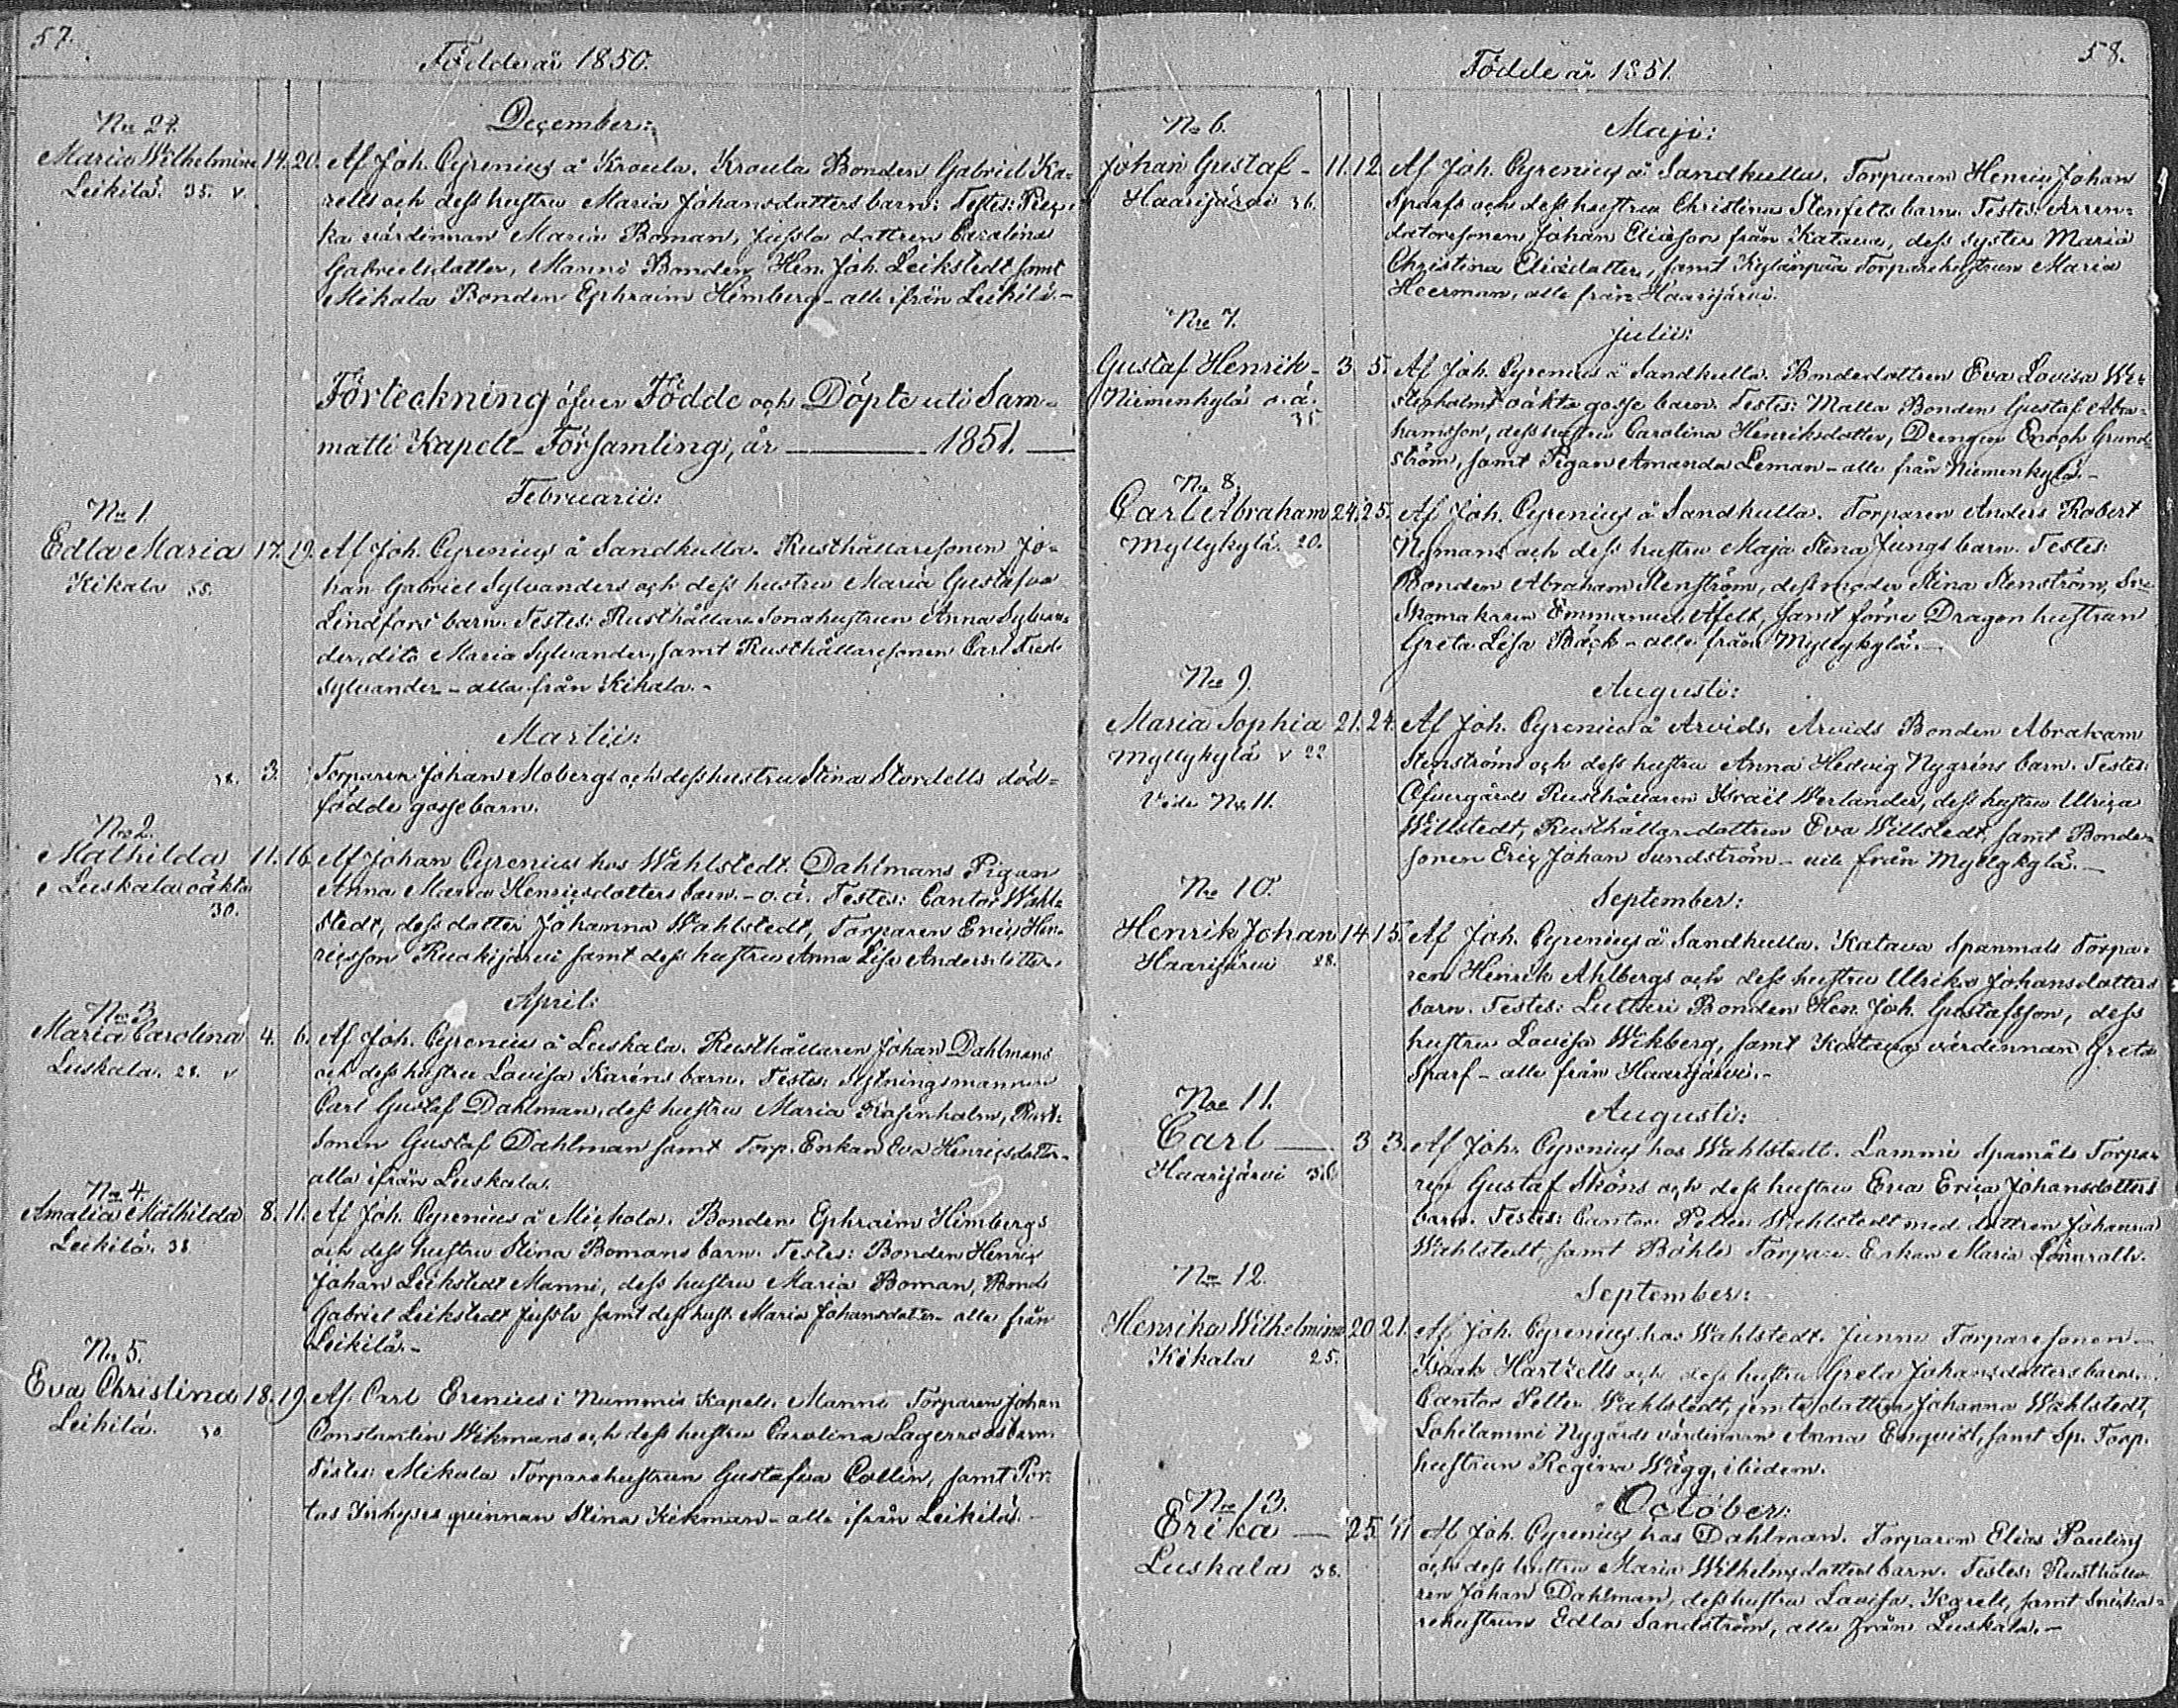 57.
Födde år 1850.
December:
No 24.
Maria Wilhelmina 14. 20. Af Joh. Cyrenius å Kroula. Kroula Bonden Gabriel Ka-
Leikilä. 35. v. rells och dess hustru Maria Johansdotters barn: Testes:
ka värdinnan Maria Boman, Jussla dottren Carolina
Gabrielsdotter, Manni Bonden Hen. Joh. Leikstedt samt
Mikala Bonden Ephraim Himberg - alla ifrån Leikilä. -
Förteckning öfver Födde och Döpte uti Sam-
matti Kapell-Församling, år 1851.
Februarii:
No 1.
Edla Maria 17. 19. Af Joh. Cyrenius å Sandkulla. Rusthållaresonen Jo-
Kikala 55. han Gabriel Sylvanders och dess hustru Maria Gustafva
Lindfors barn. Testes: Rusthållare Sonahustrun Anna Sylvan-
der, dito Maria Sylvander, samt Rusthållaresonen Carl Fred.
Sylvander - alla från Kikala. -
Martii:
38. 3. Torparen Johan Mobergs och dess hustru Stina Stordells död-
födde gossebarn.
No 2.
Mathilda 11. 16. Af Johan Cyrenius hos Wahlstedt. Dahlmans Pigan
Luskala oäkta Anna Maria Henricsdotters barn. - o.ä. Testes: Cantor Wahl-
30. stedt, dess dotter Johanna Wahlstedt, Torparen Eric Hen-
ricsson Ruokijärvi samt dess hustru Anna Lisa Andersdotter.
April:
No 3.
Maria Carolina 4. 6. Af Joh. Cyrenius å Luskala. Rusthållaren Johan Dahlmans
Luskala. 28. v och dess hustru Lovisa Karéns barn. Testes:
Carl Gustaf Dahlman, dess hustru Maria Rosenholm, Rust-
sonen Gustaf Dahlman samt Torp. Enkan Eva Henricsdotter
alla ifrån Luskala.
No 4.
Amalia Mathilda 8. 11. Af Joh. Cyrenius å Michola. Bonden Ephraim Himbergs
Leikilä. 38 och dess hustru Stina Bomans barn. Testes: Bonden Henric
Johan Leikstedt Manni, dess hustru Maria Boman, Bond.
Gabriel Leikstedt Jussla samt dess hust. Maria Johansdotter - alla från
Leikilä. -
No 5.
Eva Christina 18. 19. Af Carl Erenius i Nummis Kapell. Manni Torparen Johan
Leikilä. 30 Constantin Wikmans och dess hustru Carolina
Testes: Mikola Torparehustrun Gustafva Collin, samt Por-
tas Inhyses qvinnan Stina Kikman - alla ifrån Leikilä. -
58.
Födde år 1851.
Maji:
No 6.
Johan Gustaf - 11. 12. Af Joh. Cyrenius å Sandkulla. Torparen Henric Johan
Haarijärvi 36. Sparfs och dess hustru Christina Stenfelts barn. Testes: Arren-
datorsonen Johan Eliasson från Katava, dess syster Maria
Christina Eliædotter, samt Kylänpää Torparehustrun Maria
Heerman, alla från Haarijärvi.
Julii:
No 7.
Gustaf Henrik - 3 5. Af Joh. Cyrenius å Sandkulla. Bondedottren Eva Lovisa We-
Niemenkylä o.ä. sterholms oäkta gosse barn. Testes: Malla Bonden Gustaf Abra-
35. hamsson, dess hustru Carolina Henriksdotter, Drengen Enoch Grund-
ström, samt Pigan Amanda Leman - alla från Niemenkylä. -
No 8.
Carl Abraham 24. 25. Af Joh. Cyrenius å Sandkulla. Torparen Anders Robert
Myllykylä. 20. Nymans och dess hustru Maja Stina Jungs barn. Testes:
Bonden Abraham Stenström, dess moder Stina Stenström,
Skomakaren Emmanuel Afelt, samt förre Dragon hustrun
Greta Lisa Bäck - alla från Myllykylä. -
Augusti:
No 9.
Maria Sophia 21. 24. Af Joh. Cyrenius å Arvids. Arvids Bonden Abraham
Myllykylä v 22 Stenströms och dess hustru Anna Hedvig Nygréns barn. Testes:
Vide No 11. Öfvergårds Rusthållaren Israël Werlander, dess hustru Ulrica
Willstedt, Rusthållardottren Eva Willstedt, samt Bonde-
sonen Eric Johan Sundström - alla från Myllykylä. -
September:
No 10.
Henrik Johan 14 15. Af Joh. Cyrenius å Sandkulla. Katava Spanmåls Torpa-
Haarijärvi 28. ren Heinrik Ahlbergs och dess hustru Ulrika Johansdotters
barn. Testes: Lutteri Bonden Hen. Joh. Gustafsson, dess
hustru Lovisa Wikberg, samt Katava värdinnan Greta
Sparf - alla från Haarijärvi. -
Augusti:
No 11.
Carl 3 3. Af Joh. Cyrenius hos Wahlstedt. Lammi Spamåls Torpa-
Haarijärvi 36 ren Gustaf Sköns och dess hustru Eva Erica Johansdotters
barn. Testes: Cantor Petter Wahlstedt med dottren Johanna
Wahlstedt, samt Böhle Torpare Enkan Maria Lönnroth.
September:
No 12.
Henrika Wilhelmina 20. 21. Af Joh. Cyrenius hos Wahlstedt. Junnu Torparesonen
Kikala 25. Isaak Hartzells och dess hustru Greta Johansdotters barn.
Cantor Petter Wahlstedt, jemte dottren Johanna Wahlstedt,
Lohilammi Nygårds värdinnan Anna Enqvist, samt Sp. Torp.
hustrun Regina Wägg, ibidem.
October:
No 13.
Erika - 25 Af Joh. Cyrenius hos Dahlman. Torparen Elias Paulins
Luskala 38. och dess hustru Maria Wilhelmsdotters barn. Testes: Rusthålla-
ren Johan Dahlman, dess hustru Lovisa samt Snicka-
rehustrun Edla Sandström, alla från Luskala. -